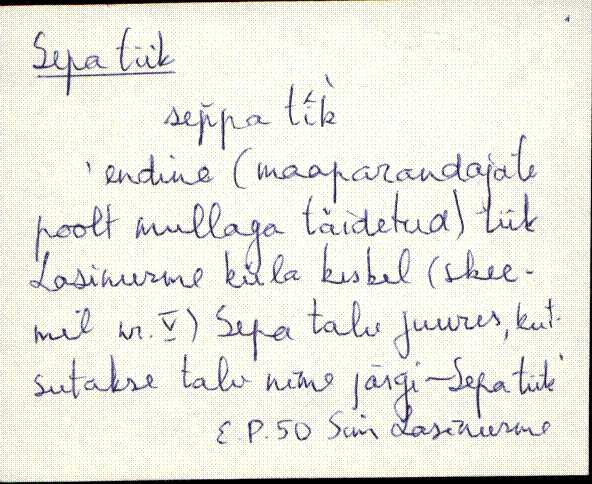 Sepa tiik
sep̆pa tìk̀
'endine (maaparandajate
poolt mullaga täidetud) tiik
Lasinurme küla keskel (skee-
mil nr. V) Sepa talu juures, kut-
sutakse talu nime järgi – Sepa tiik'
E.P. 50 Sim Lasinurme